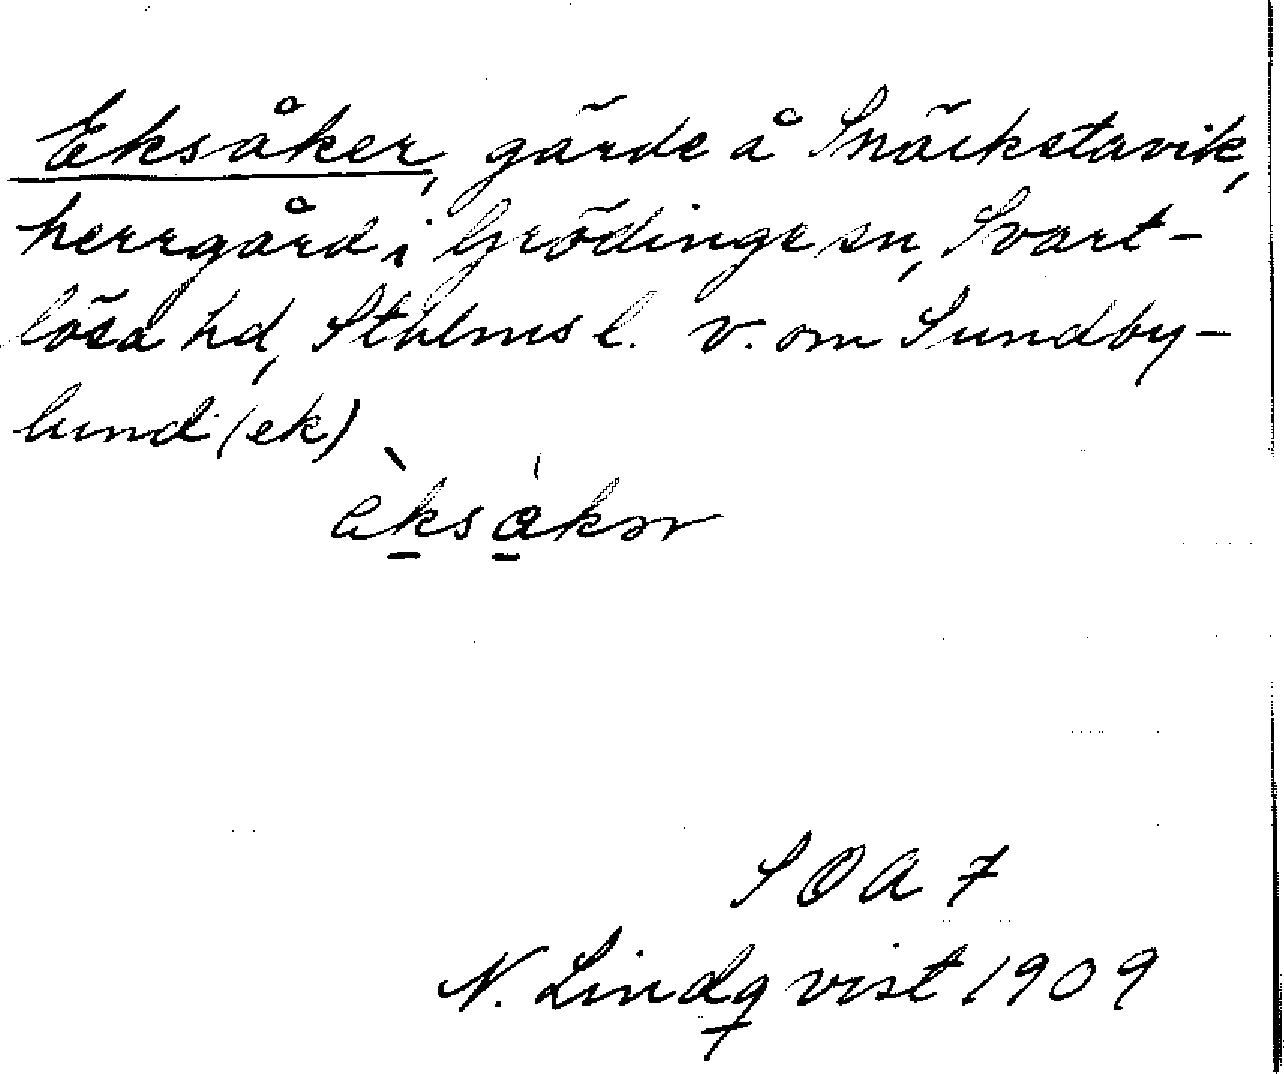 Eksåker, gärde å Snäckstavik,
herrgård i Grödinge sn, Svart-
lösa hd, Sthlms l. v. om Sundby-
lund (ek)
èksákər
SOA 7
N. Lindqvist 1909